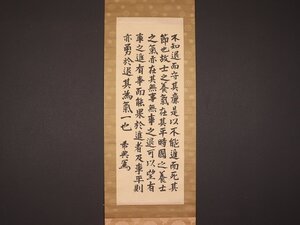 不知退而守其廉是以不能進而死其
節也故士之養氣在其平時國之養士
之氣亦在其無事無事之退可以望有
事之進有事而能果於進者及事平則
亦勇於退其為氣一也